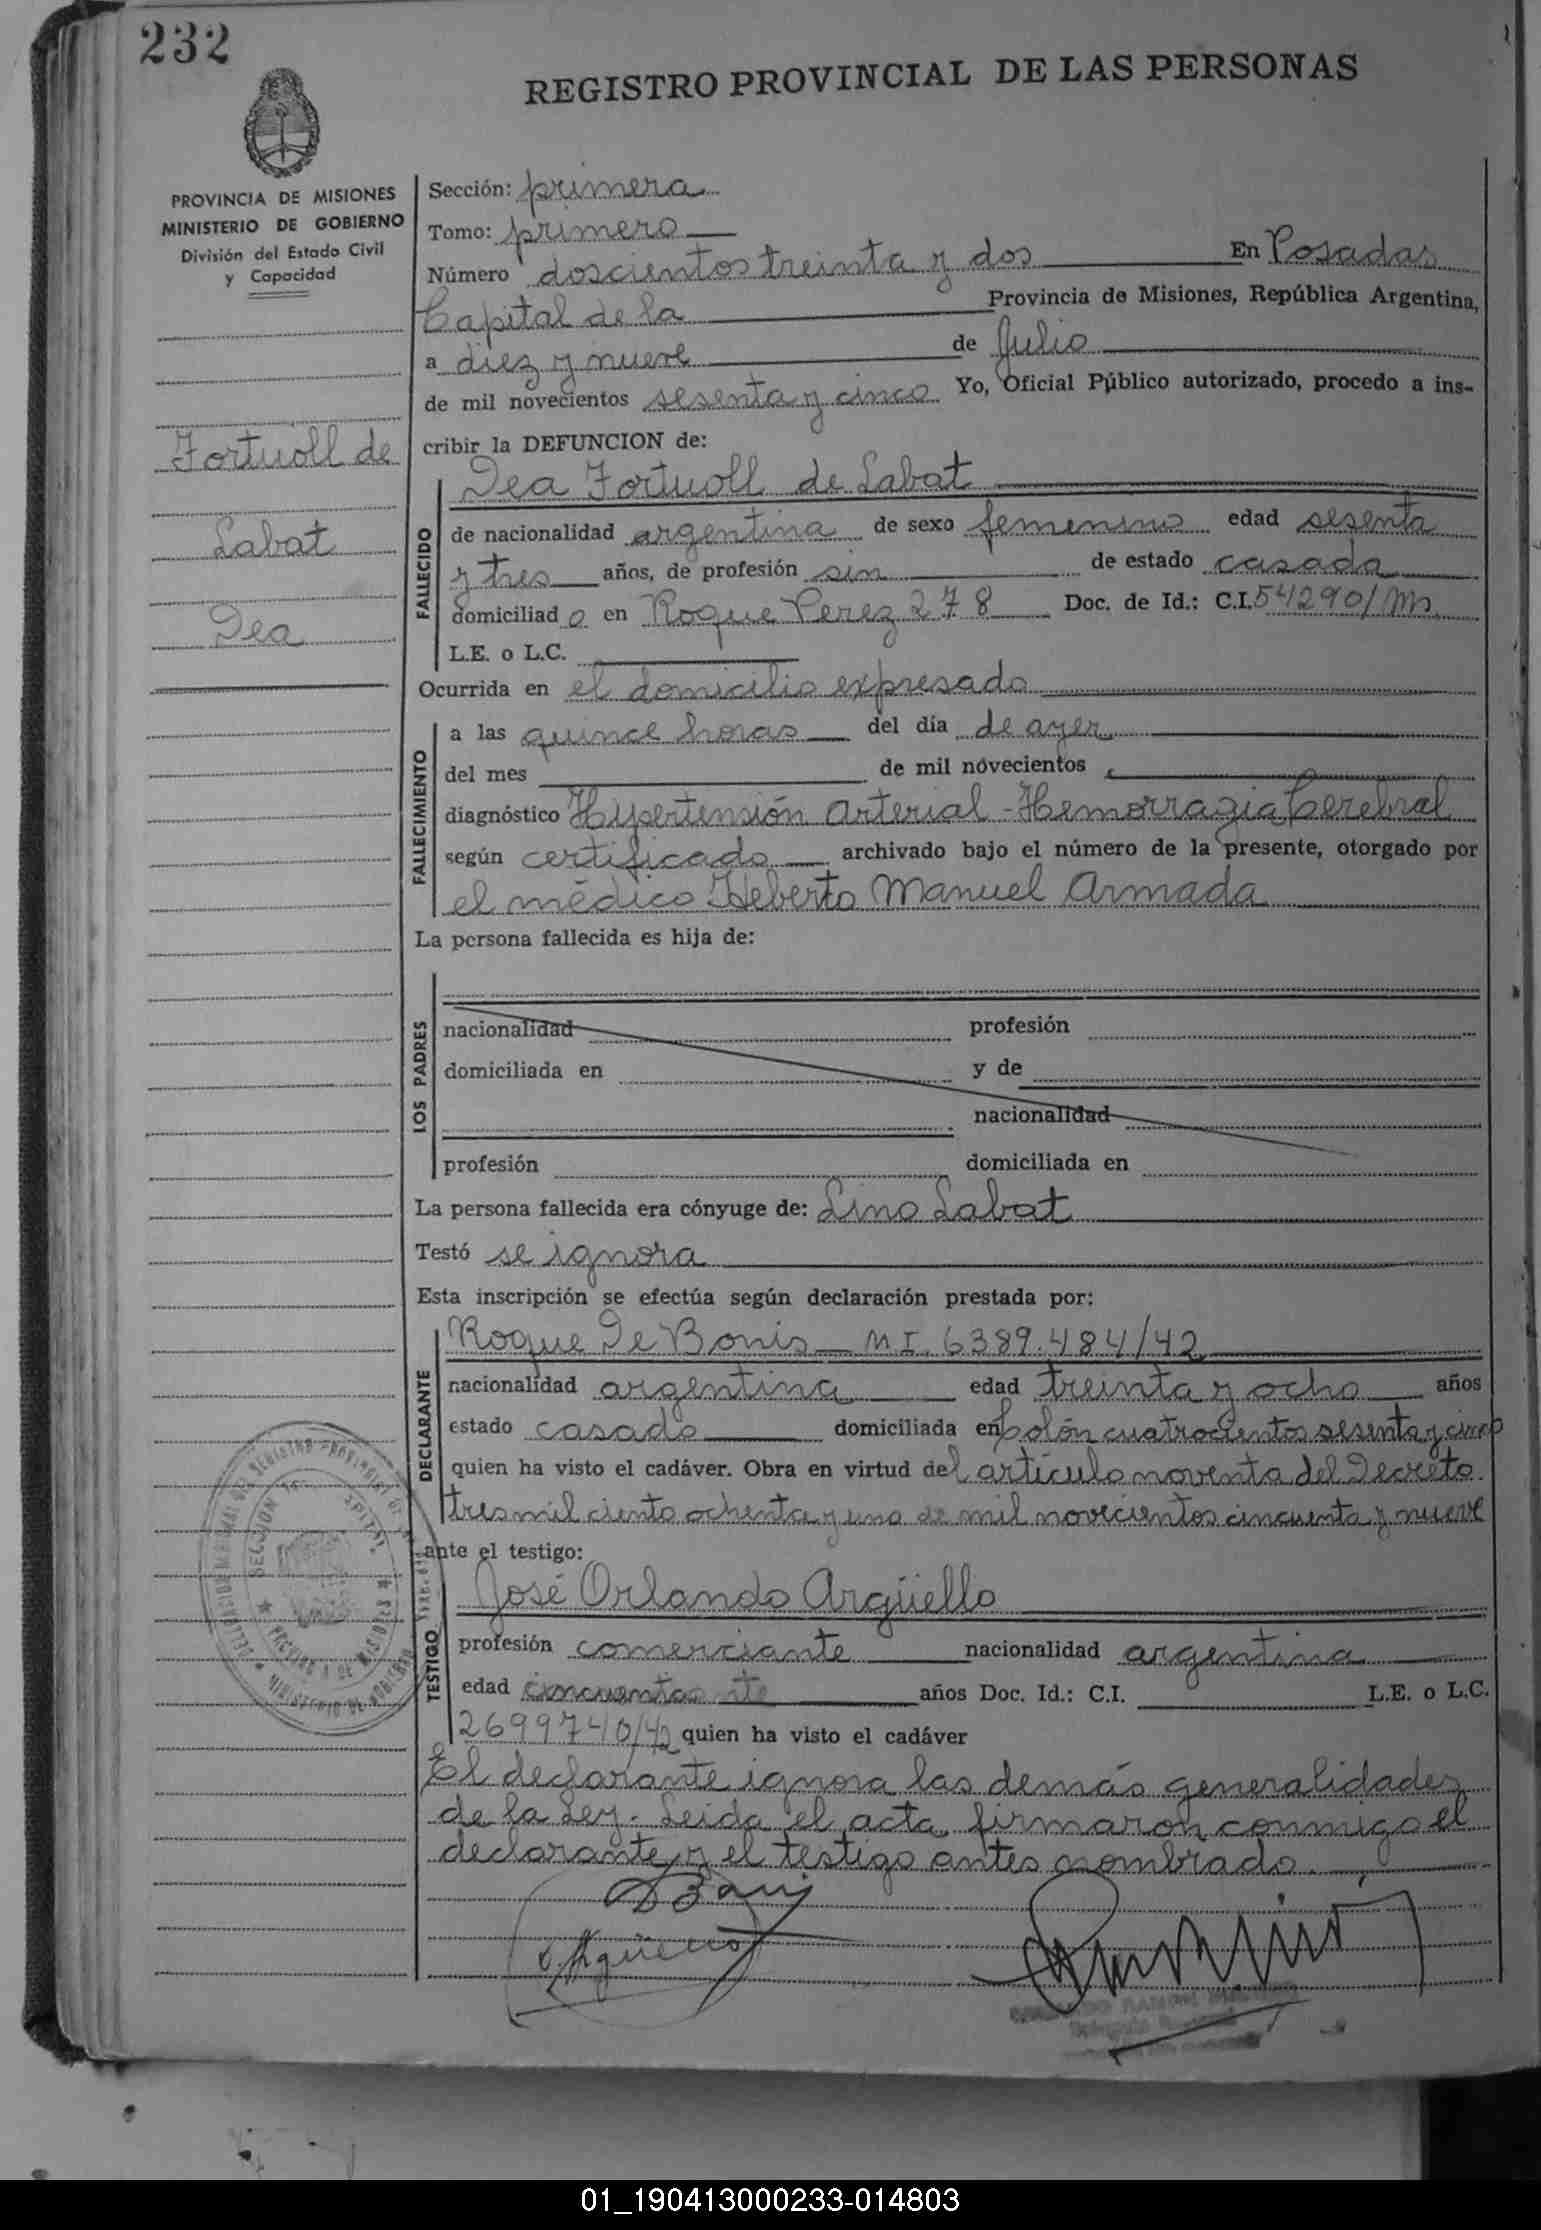 232
REGISTRO PROVINCIAL DE LAS PERSONAS
PROVINCIA DE MISIONES
MINISTERIO DE GOBIERNO
División del Estado Civil
y Capacidad
Fortuoll de
Labat
Dea
Sección: primera
Tomo: primero
Número doscientos treinta y dos En Posadas
Capital de la Provincia de Misiones, República Argentina,
a diez y nueve de Julio
de mil novecientos sesenta y cinco Yo, Oficial Público autorizado, procedo a ins-
cribir la DEFUNCION de:
FALLECIDO
Dea Fortuoll de Labat
de nacionalidad argentina de sexo femenino edad sesenta
y tres años, de profesión sin de estado casada
domiciliad o en Roque Perez 278 Doc. de Id.: C.I. 54290/M
L.E. o L.C.
Ocurrida en el domicilio expresado
FALLECIMIENTO
a las quince horas del día de ayer
del mes de mil novecientos
diagnóstico Hipertensión Arterial - Hemorragia Cerebral
según certificado archivado bajo el número de la presente, otorgado por
el médico Heberto Manuel Armada
La persona fallecida es hija de:
LOS PADRES
nacionalidad profesión
domiciliada en y de
nacionalidad
profesión domiciliada en
La persona fallecida era cónyuge de: Lino Labat
Testó se ignora
Esta inscripción se efectúa según declaración prestada por:
DECLARANTE
Roque De Bonis M.I. 6389.484/42
nacionalidad argentina edad treinta y ocho años
estado casado domiciliada en Colón cuatrocientos sesenta y cinco
quien ha visto el cadáver. Obra en virtud del artículo noventa del Decreto
tres mil ciento ochenta y uno de mil novecientos cincuenta y nueve
ante el testigo:
TESTIGO
José Orlando Argüello
profesión comerciante nacionalidad argentina
edad cincuenta años Doc. Id.: C.I. L.E. o L.C.
2699740/42 quien ha visto el cadáver
El declarante ignora las demás generalidades
de la Ley. Leida el acta, firmaron conmigo el
declarante y el testigo antes nombrado.
O. Argüello
01_190413000233-014803